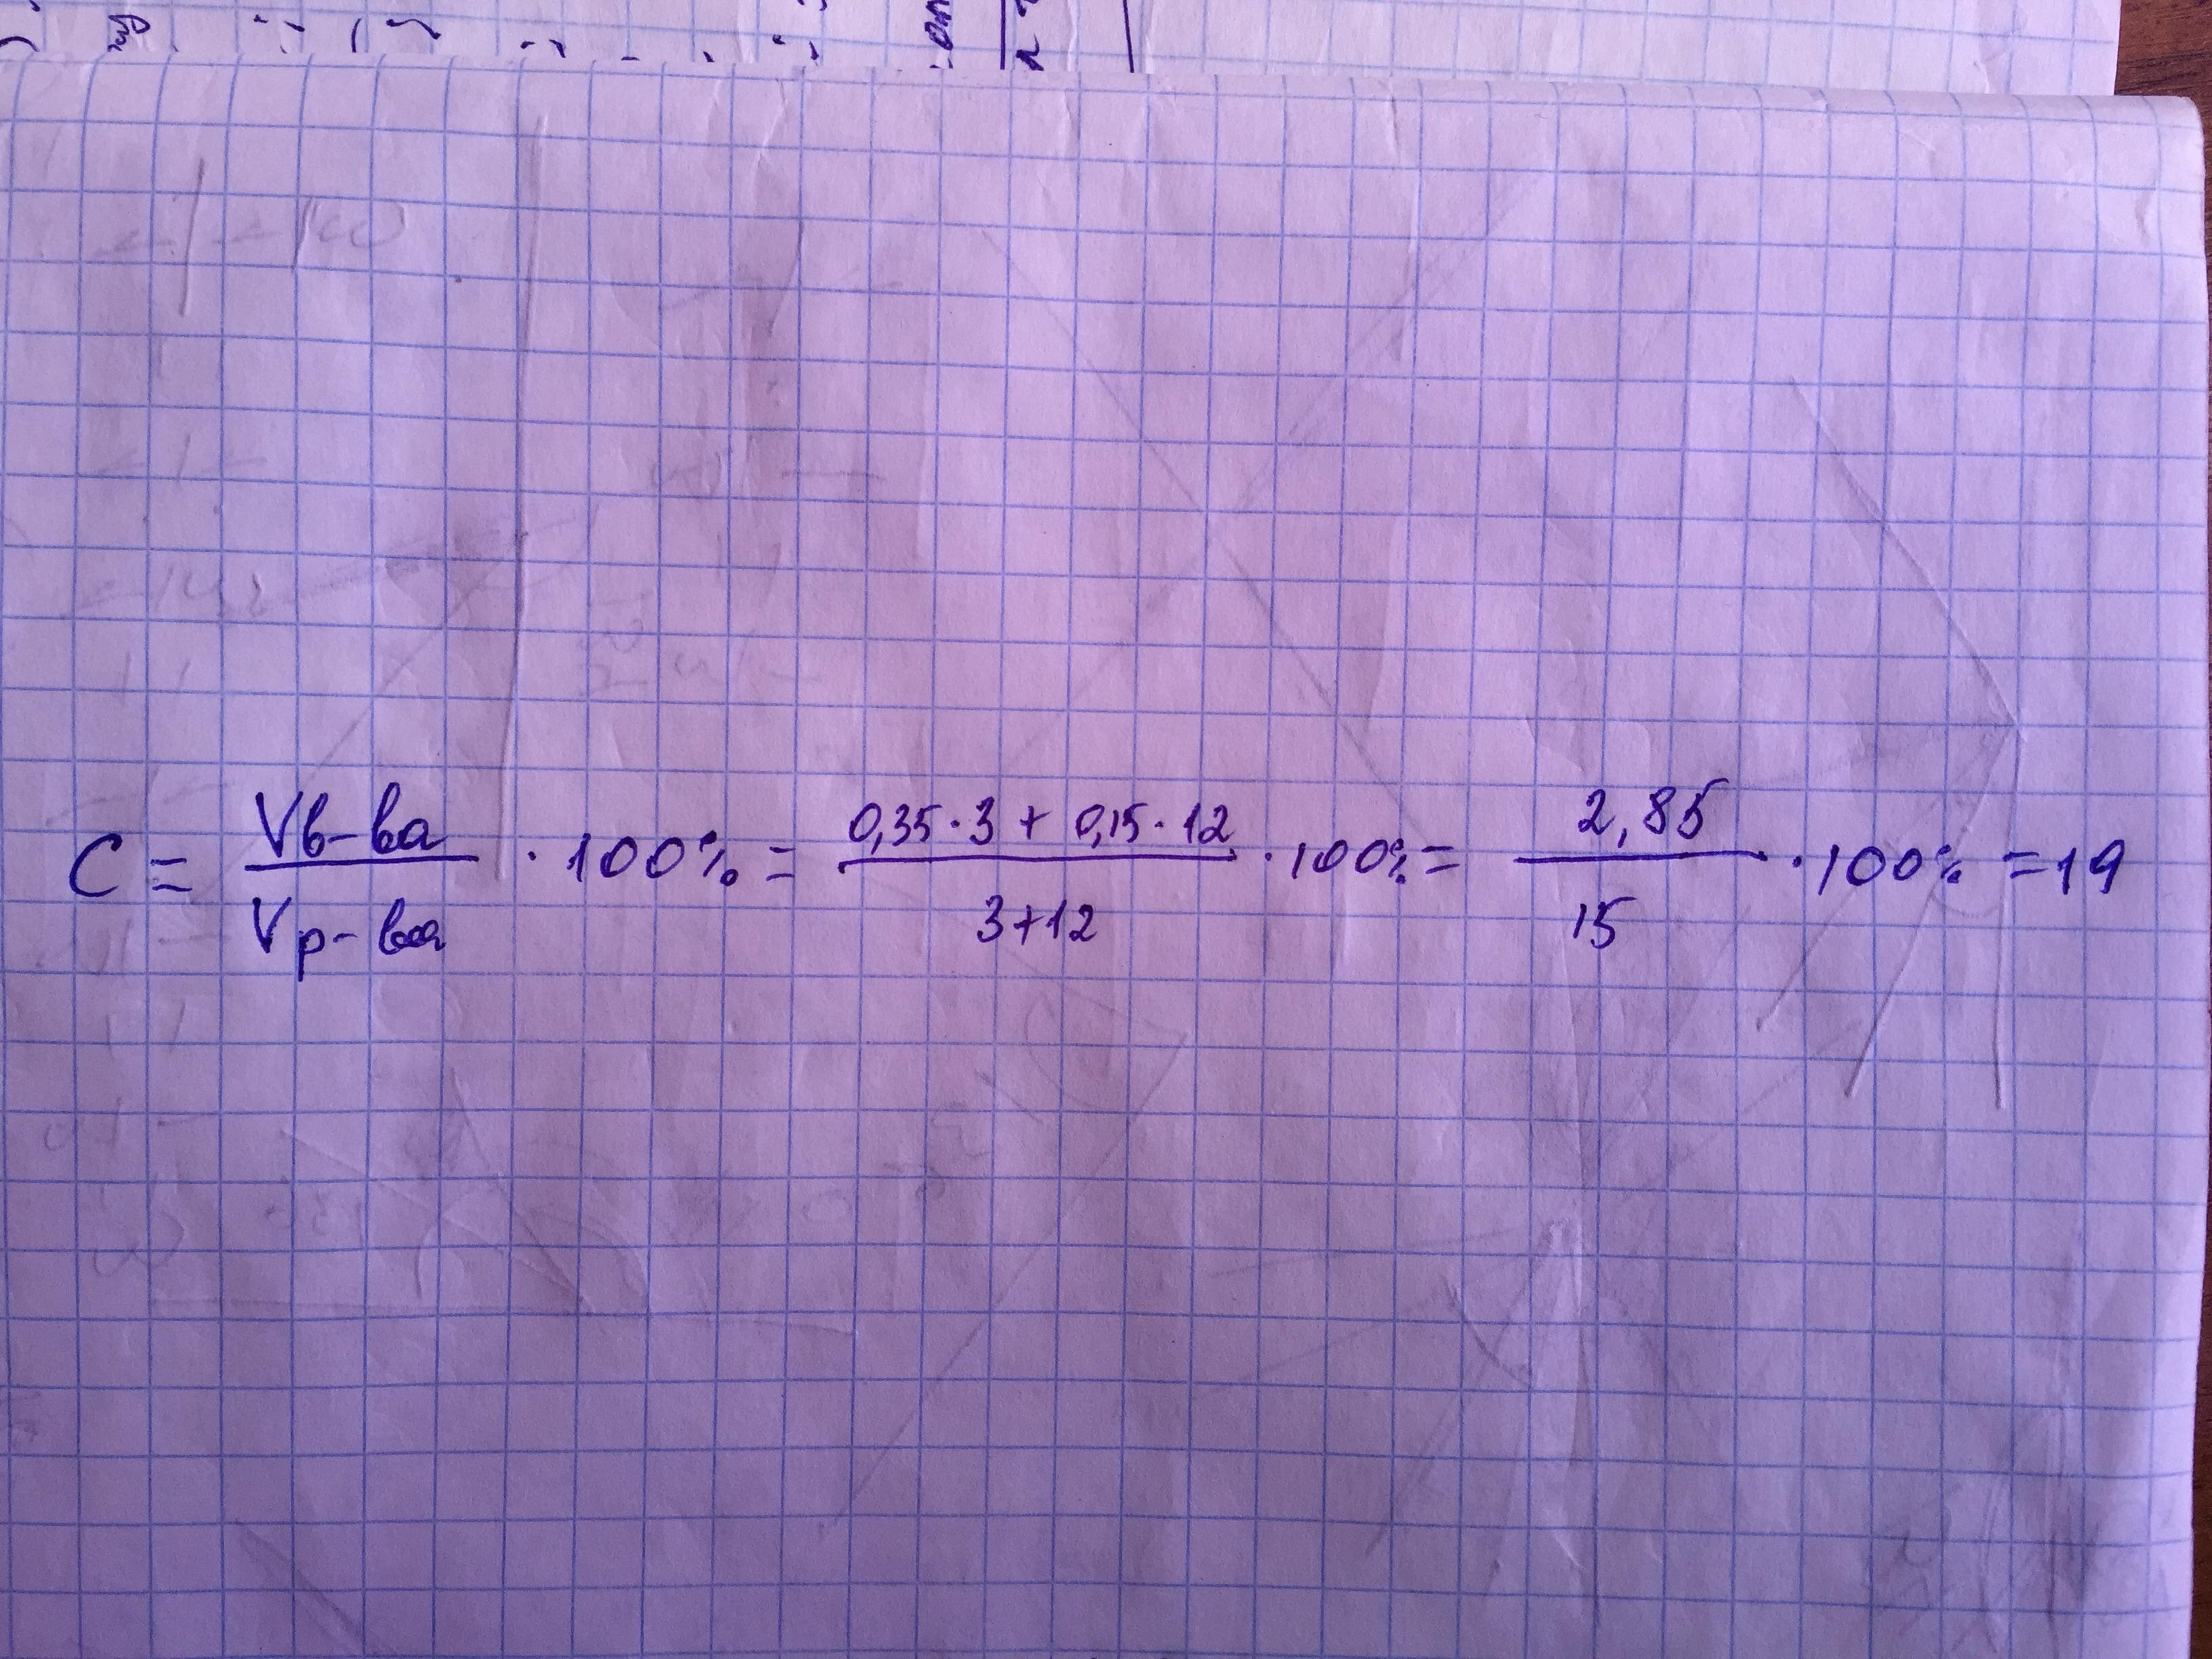 C = Vв-ва / Vр-ва · 100% = 0,35·3 + 0,15·12 / 3+12 · 100% = 2,85 / 15 · 100% = 19